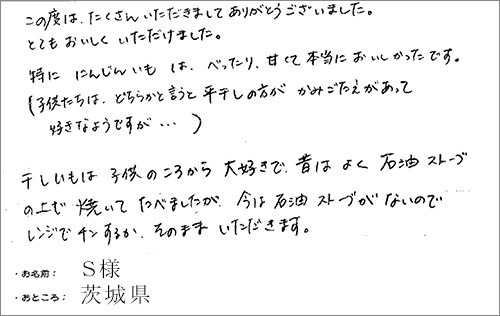 この度は、たくさんいただきましてありがとうございました。
とてもおいしくいただけました。
特に にんじんいも は、べったり、甘くて本当においしかったです。
(子供たちは、どちらかと言うと平干しの方が かみごたえがあって
好きなようですが… )
干しいもは子供のころから大好きで、昔は よく 石油ストーブ
の上で 焼いて たべましたが、今は石油ストーブがないので
レンジでチンするか、そのまま いただきます。
・お名前： S様
・おところ： 茨城県